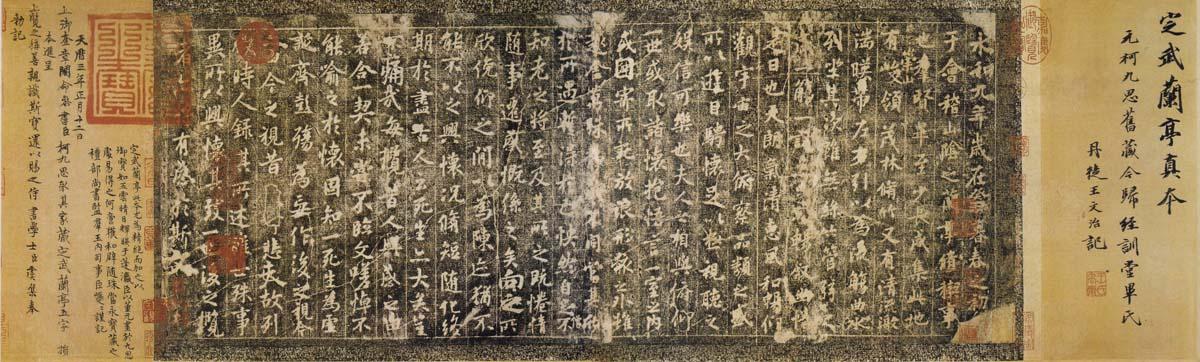 定武蘭亭真本
元柯九思舊藏今歸經訓堂畢氏
丹徒王文治記
永和九年歲在癸丑暮春之初
于會稽山陰之蘭亭脩稧事
也羣賢畢至少長咸集此地
有峻領茂林脩竹又有清流激
湍暎帶左右引以為流觴曲水
列坐其次
一觴一詠亦足以暢叙幽情
是日也天朗氣清惠風和暢仰
觀宇宙之大俯察品類之盛
所以遊目騁懷足以極視聽之
娛信可樂也夫人之相與俯仰
一世或取諸懷抱悟言一室之內
或因寄所託放浪形骸之外雖
趣舍萬殊靜躁不同當其欣
於所遇蹔得於己怏然自足不
知老之將至及其所之既惓情
隨事遷感慨係之矣向之所
欣俛仰之間以為陳迹猶不
能不以之興懷況脩短隨化終
期於盡古人云死生亦大矣豈
不痛哉每攬昔人興感之由
若合一契未嘗不臨文嗟悼不
能喻之於懷固知一死生為虛
誕齊彭殤為妄作後之視今
亦由今之視昔悲夫故列
敘時人錄其所述雖世殊事
異所以興懷其致一也後之攬
者亦將有感於斯文
定武蘭亭此本尤為精絕而加之以
御寶如五雲晴日輝暎於蓬瀛臣以董元畫於九思
處易得之何啻獲和璧隨珠當永寶藏之
禮部尚書監羣玉內司事臣巎巎謹記
天曆三年正月十二日
上御奎章閣命參書臣柯九思取其家藏定武蘭亭五字損
本進呈
上覽之稱善親識斯寶還以賜之侍書學士臣虞集奉
勅記